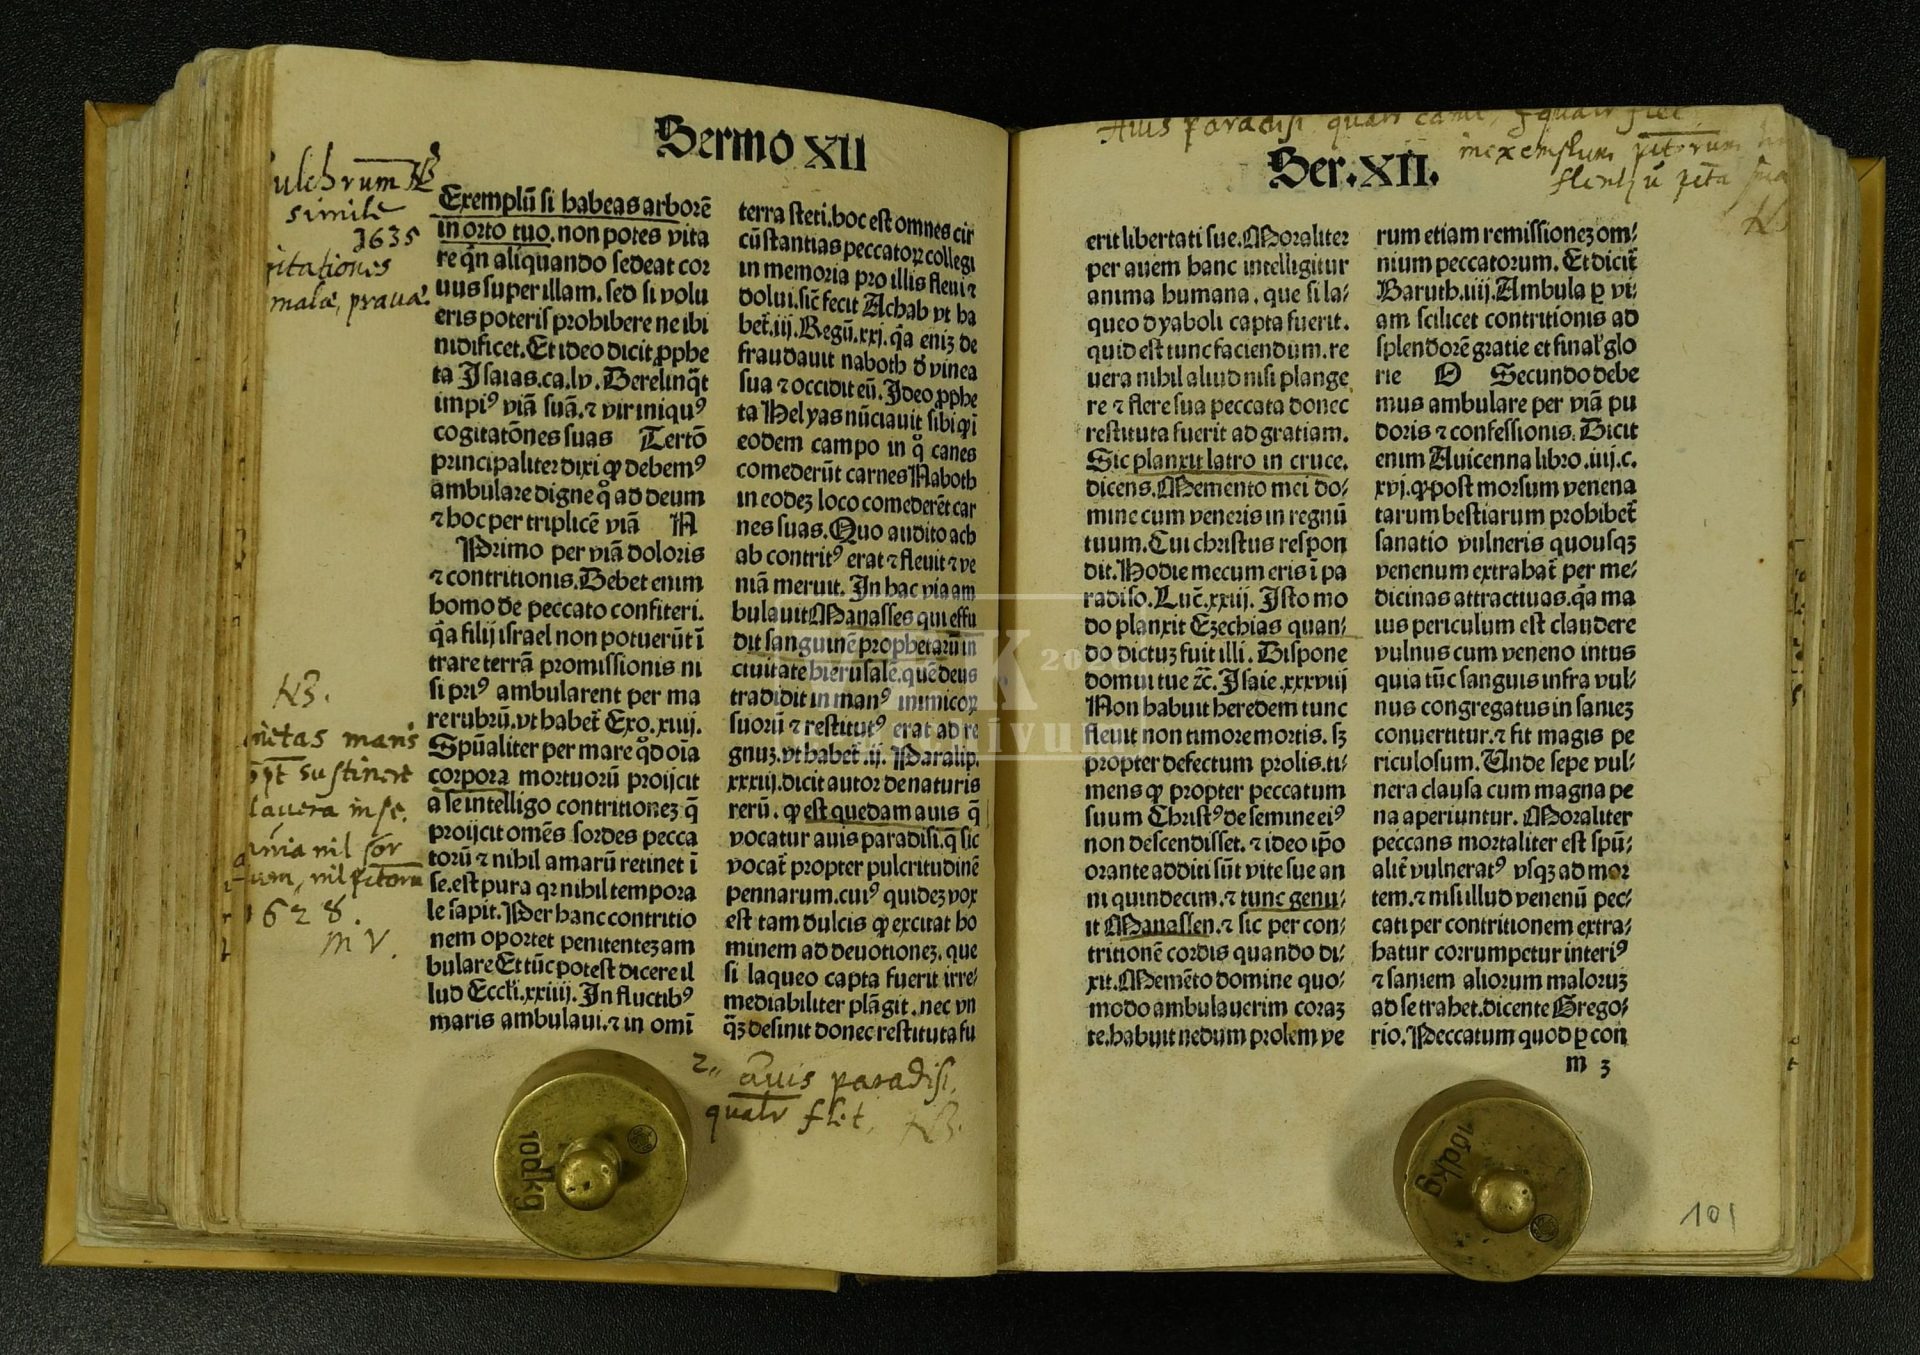 Sermo XII
pulchrum NB
simile
1635
cogitationes
malæ, pravæ.
Exemplũ si habeas arborẽ
in orto tuo. non potes vita
re qͥn aliquando sedeat cor
uus super illam. sed si volu
eris poteris prohibere ne ibi
nidificet. Et ideo dicit ꝓphe
ta Isaias. ca. lv. Derelinq̃t
impiꝰ viã suã. ⁊ vir iniquꝰ
cogitatõnes suas Tertõ
principaliter dixi ꝙ debemꝰ
ambulare digne qͦ ad deum
⁊ hoc per triplicẽ viã N
Primo per viã doloris
⁊ contritionis. Debet enim
homo de peccato confiteri.
q̃a filij israel non potuerũt ĩ
trare terrã promissionis ni
si priꝰ ambularent per ma
re rubrũ. vt habet̃ Exo. xiiij.
Spũaliter per mare q̃d oĩa
corpora mortuorũ proijcit
a se intelligo contritionez q̃
proijcit omẽs sordes pecca
torũ ⁊ nihil amarũ retinet ĩ
se. est pura qꝛ nihil tempora
le sapit. Per hanc contritio
nem oportet penitentez am
bulare Et tũc potest dicere il
lud Eccli. xxiiij. In fluctibꝰ
maris ambulaui. ⁊ in omĩ
NB.
maris
sustinere
in se.
nil sor
nil
1628.
MV.
terra steti. hoc est omnes cir
cũstantias peccatoꝝ collegi
in memoria pro illis fleui ⁊
dolui. sic̃ fecit Achab vt ha
bet̃. iij. Regũ. xxj. q̃a eniz de
fraudauit naboth ð vinea
sua ⁊ occidit eũ. Ideo ꝓphe
ta Helyas nũciauit sibi ꝙ ĩ
eodem campo in qͦ canes
comederũt carnes Naboth
in eodez loco comederẽt car
nes suas. Quo audito ach
ab contritꝰ erat ⁊ fleuit ⁊ ve
niã meruit. In hac via am
bulauit Manasses qui effu
dit sanguinẽ prophetarũ in
ciuitate hierusalẽ. quẽ deus
tradidit in manꝰ inimicoꝝ
suorũ ⁊ restitutꝰ erat ad re
gnuz. vt habet̃. ij. Paralip.
xxxiij. dicit autor de naturis
rerũ. ꝙ est quedam auis q̃
vocatur auis paradisi. q̃ sic
vocat̃ propter pulcritudinẽ
pennarum. cuiꝰ quidez vox
est tam dulcis ꝙ excitat ho
minem ad deuotionez. que
si laqueo capta fuerit irre⸗
mediabiliter plãgit. nec vn
q̃z desinit donec restituta fu
2. avis paradisi,
qualr flet, NB.
Avis paradisi
in exemplum
NB
Ser. XII.
erit libertati sue. Moraliter
per auem hanc intelligitur
anima humana. que si la⸗
queo dyaboli capta fuerit.
quid est tunc faciendum. re
uera nihil aliud nisi plange
re ⁊ flere sua peccata donec
restituta fuerit ad gratiam.
Sic planxit latro in cruce.
dicens. Memento mei do⸗
mine cum veneris in regnũ
tuum. Cui christus respon
dit. Hodie mecum eris ĩ pa
radiso. Luc̃. xxiij. Isto mo
do planxit Ezechias quan⸗
do dictuz fuit illi. Dispone
domui tue ⁊c̃. Isaie. xxxviij
Non habuit heredem tunc
fleuit non timore mortis. sꝫ
propter defectum prolis. ti⸗
mens ꝙ propter peccatum
suum Christꝰ de semine eiꝰ
non descendisset. ⁊ ideo ip̃o
orante additi sũt vite sue an
ni quindecim. ⁊ tunc genu⸗
it Manassen. ⁊ sic per con⸗
tritionẽ cordis quando di⸗
xit. Memẽto domine quo⸗
modo ambulauerim coraz
te. habuit nedum prolem ve
rum etiam remissionez om⸗
nium peccatorum. Et dicit̃
Baruth. iiij. Ambula ꝑ vi⸗
am scilicet contritionis ad
splendorẽ gratie et final̃ glo
rie O Secundo debe
mus ambulare per viã pu
doris ⁊ confessionis. Dicit
enim Auicenna libro. iiij. c.
xvj. ꝙ post morsum venena
tarum bestiarum prohibet̃
sanatio vulneris quousqꝫ
venenum extrahat̃ per me⸗
dicinas attractiuas. q̃a ma
ius periculum est claudere
vulnus cum veneno intus
quia tũc sanguis infra vul⸗
nus congregatus in saniez
conuertitur. ⁊ fit magis pe
riculosum. Unde sepe vul⸗
nera clausa cum magna pe
na aperiuntur. Moraliter
peccans mortaliter est spũ⸗
alit̃ vulneratꝰ vsqꝫ ad mor
tem. ⁊ nisi illud venenũ pec⸗
cati per contritionem extra⸗
hatur corrumpetur interiꝰ
⁊ saniem aliorum maloruz
ad se trahet. dicente Grego⸗
rio. Peccatum quod ꝑ con
m 3
101
10dkg
10dkg